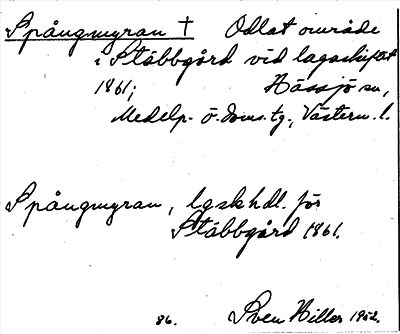 Spångmyran † Odlat område
i Stäbbgård vid lagaskiftet
1861; Hässjö sn,
Medelp. ö. doms. tg., Västern. l.
Spångmyran, lgskhdl. för
Stäbbgård 1861.
86. Sven Hiller 1952.